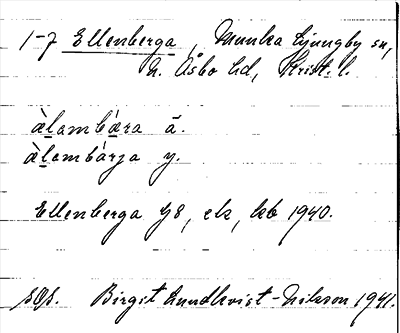 1-7 Ellenberga, Munka Ljungby sn,
N. Åsbo hd, Krist. l.
àlambǽra ä.
àlambárja y.
Ellenberga 78, ek, kb 1940.
SOS. Birgit Lundkvist-Nilsson 1941.